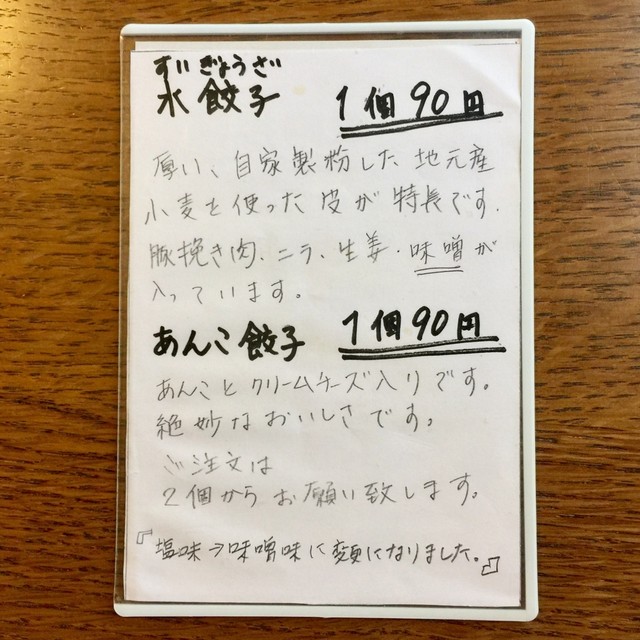 すいぎょうざ
水餃子 1個90円
厚い、自家製粉した地元産
小麦を使った皮が特長です。
豚挽き肉、ニラ、生姜・味噌が
入っています。
あんこ餃子 1個90円
あんことクリームチーズ入りです。
絶妙なおいしさです。
ご注文は
2個からお願い致します。
『塩味→味噌味に変更になりました。』